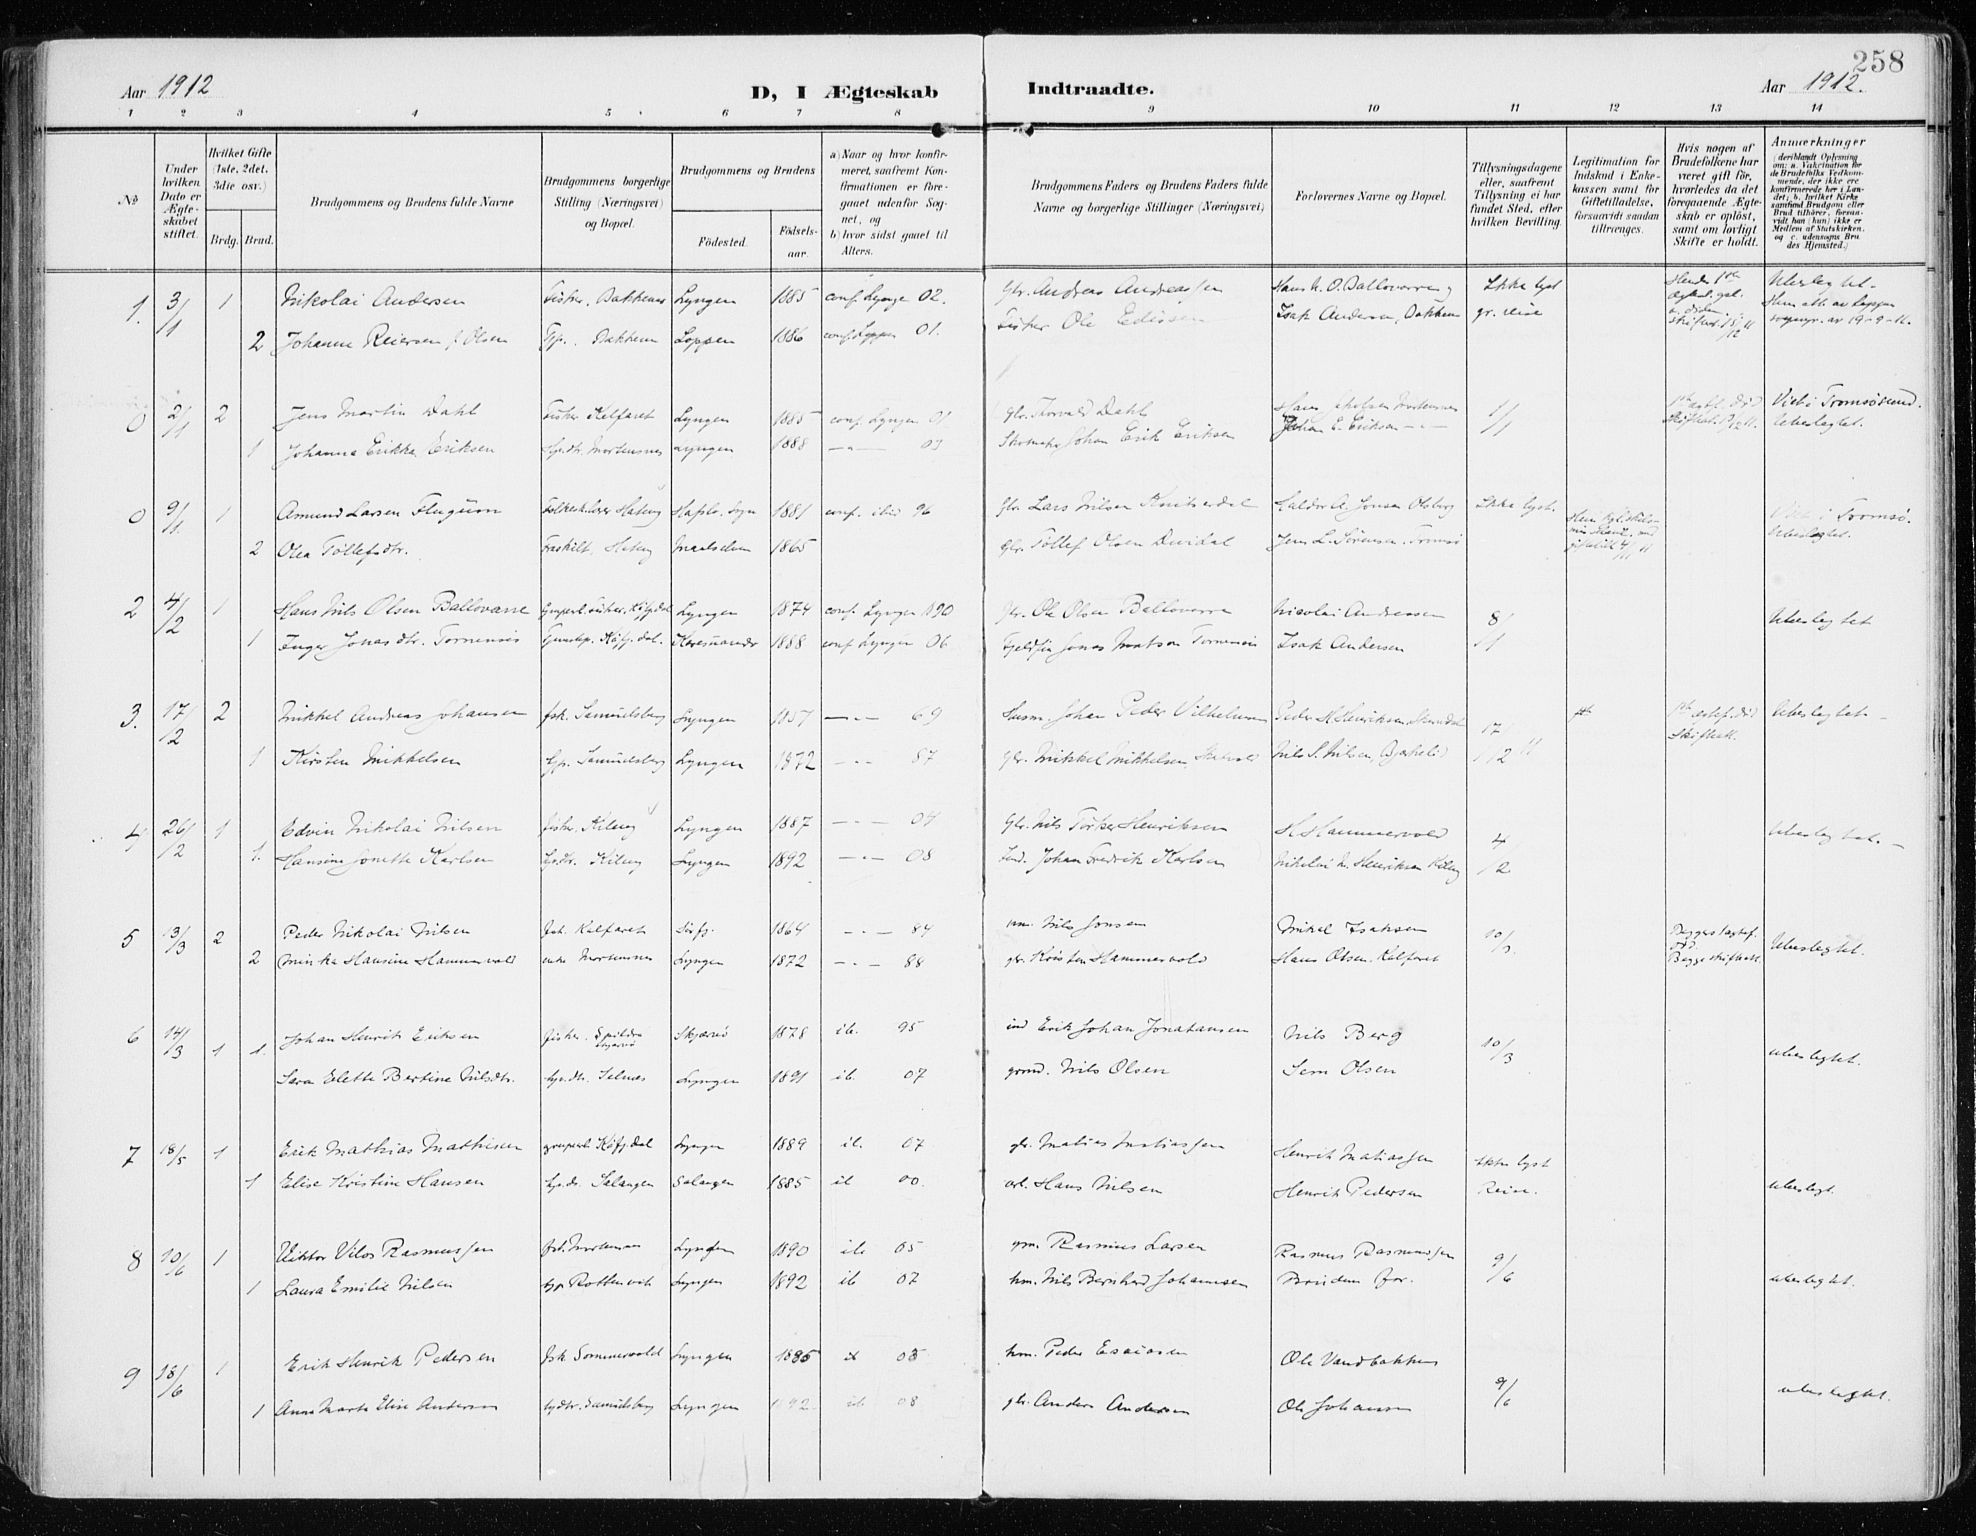 258
Aar 1912
D, I Ægteskab Indtraadte.
Aar 1912.
1 2 3 4 5 6 7 8 9 10 11 12 13 14
№
Under hvilken Dato er Ægteskabet stiftet.
Hvilket Gifte (1ste, 2det, 3die osv.)
Brdg. Brud.
Brudgommens og Brudens fulde Navne
Brudgommens borgerlige Stilling (Næringsvei) og Bopæl.
Brudgommens og Brudens
Födested.
Födselsaar.
a) Naar og hvor konfirmeret, saafremt Konfirmationen er foregaaet udenfor Sognet, og
b) hvor sidst gaaet til Alters.
Brudgommens Faders og Brudens Faders fulde Navne og borgerlige Stillinger (Næringsvei)
Forlovernes Navne og Bopæl.
Tillysningsdagene eller, saafremt Tillysning ei har fundet Sted, efter hvilken Bevilling.
Legitimation for Indskud i Enkekassen samt for Giftetilladelse, forsaavidt saadan tiltrænges.
Hvis nogen af Brudefolkene har været gift før, hvorledes da det foregaaende Ægteskab er oplöst, samt om lovligt Skifte er holdt.
Anmærkninger
(deriblandt Oplysning om: a. Vakcination for de Brudefolks Vedkommende, der ikke ere konfirmerede her i Landet; b. hvilket Kirkesamfund Brudgom eller Brud tilhører, forsaavidt han (hun) ikke er Medlem af Statskirken, og c. udensogns Brudes Hjemsted.)
1. 3/1 1 Nikolai Andersen Fisker, Bakkener Lyngen 1885 conf. Lyngen 02. Gbr. Andreas Andreassen Hans N. O. Ballovarre Ikke lyst Ubeslegtet.
2 Johanne Reiersen f. Olsen Tjp. Bakken Loppen 1886 conf. Loppen 01. Fisker Ole Edissen Isak Andersen, Bakken gr. reise
0 2/1 2 Jens Martin Dahl Fisker Kilfaret Lyngen 1885 conf. Lyngen 01 Gbr. Thorvald Dahl 1/1 Viet i Tromsøsund.
1 Johanna Erikka Eriksen Gp.dtr. Mortensnes Lyngen 1888 — " — 03 Skomaker Johan Erik Eriksen Johan E. Eriksen — " — Ubeslegtet.
0 9/1. 1 Amund Larsen Flugum 1881 conf. ibid 96 Gbr. Lars Nilsen Haldor A. Jonsen Olsborg Ikke lyst. Viet i Tromsø.
2 Olea Tollefsdtr. Maalselven 1865 Gbr. Tollef Olsen Devidal Jens L. Sörensen, Tromsö Ubeslegtet.
2 4/2 1 Hans Nils Olsen Ballovarre Fisker, Kåfj.dal Lyngen 1874 conf. Lyngen 190 Gbr. Ole Olsen Ballovarre Nicolai Andreasen 8/1 Ubeslegtet
1 Inger Jonasdtr. Tornensis Kåfj.dal. Karesuando 1888 conf. Lyngen 06 Fjeldfin Jonas Matson Tornensis Isak Andersen
3. 17/2 2 Mikkel Andreas Johansen fsk. Samuelsberg Lyngen 1857 — " — 69 Husm. Johan Peder Vilhelmsen Peder H. Henriksen, Skardal 17/12 11 Ubeslegtet
1 Kirsten Mikkelsen Gp. Samuelsberg Lyngen 1872 — " — 87 Gbr. Mikkel Mikkelsen, Nils S. Nilsen,
4 26/2 1 Edvin Nikolai Nilsen Fisker, Kileng Lyngen 1887 — " — 04 Gbr. Nils Torker Henriksen H. Hammervold 4/2 Ubeslegtet.
1. Hansine Jonette Karlsen Gp.dtr. Kileng Lyngen 1892 — " — 08 Ind. Johan Fredrik Karlsen Nikolai N. Henriksen Kileng
5 13/3 2 Peder Nikolai Nilsen fsk. Kilfaret Sörfj. 1864 — " — 84 hm. Nils Jonsen Mikel Isaksen 10/3. Ubeslegtet.
2 Minka Hansine Hammervold enke Mortensnes Lyngen 1872 — " — 88 gbr. Kristen Hammervold Hans Olsen, Kilfaret Begge skiftatt.
6 14/3 1 1. Johan Henrik Eriksen Fisker. Spildra Skjærvö Skjærvö 1878 ib. 95 ind Erik Johan Jonatansen Nils Berg 10/3 ubeslegtet.
Sara Elette Bertine Nilsdtr. Gp.dtr. Selnæs Lyngen 1891 ib. 07 grmd. Nils Olsen Sem Olsen
7 18/5 1 Erik Mathias Mathisen Kåfj.dal Lyngen 1889 ib. 07 gbr. Matias Matiassen Henrik Matiassen ikke lyst
1 Elise Kristine Hansen Salangen Salangen 1885 ib 00. Hans Nilsen Henrik Pedersen Reise. ubeslegt.
8 10/6 1 Viktor Vilos Rasmussen fsk. Mortensnes Lyngen 1890 ib 05 gm. Rasmus Larsen Rasmus Rasmussen 9/6
1 Laura Emilie Nilsen Gp. Rottenvik Lyngen 1892 ib 07 hm. Nils Bernhard Johannsen Brudens far. ubeslegtet.
9 18/6 1 Erik Henrik Pedersen fsk Sommervold Lyngen 1885 ib 03 hm. Peder Esaiasen Ole Vandbakken 9/6 ubeslegtet.
1 Anna Marta Elise Andersen Gp.dtr. Samuelsberg Lyngen 1892 ib 08 gbr. Anders Andersen Ole Johansen